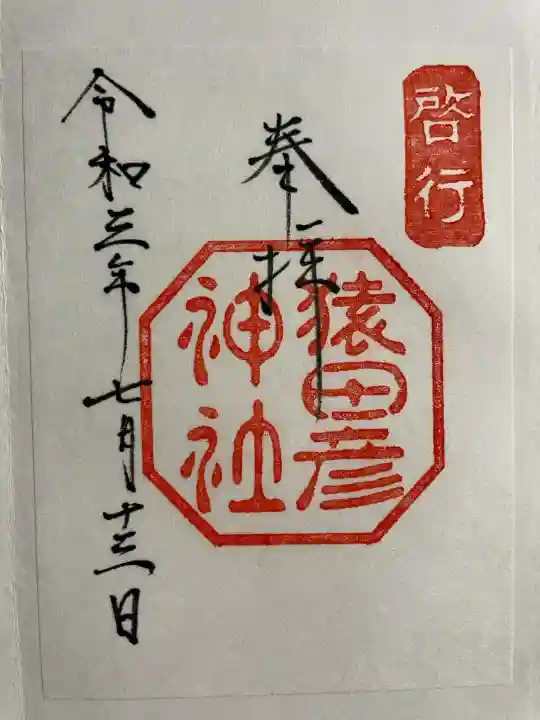 啓行
奉拝
猿田彦
神社
令和三年七月十三日